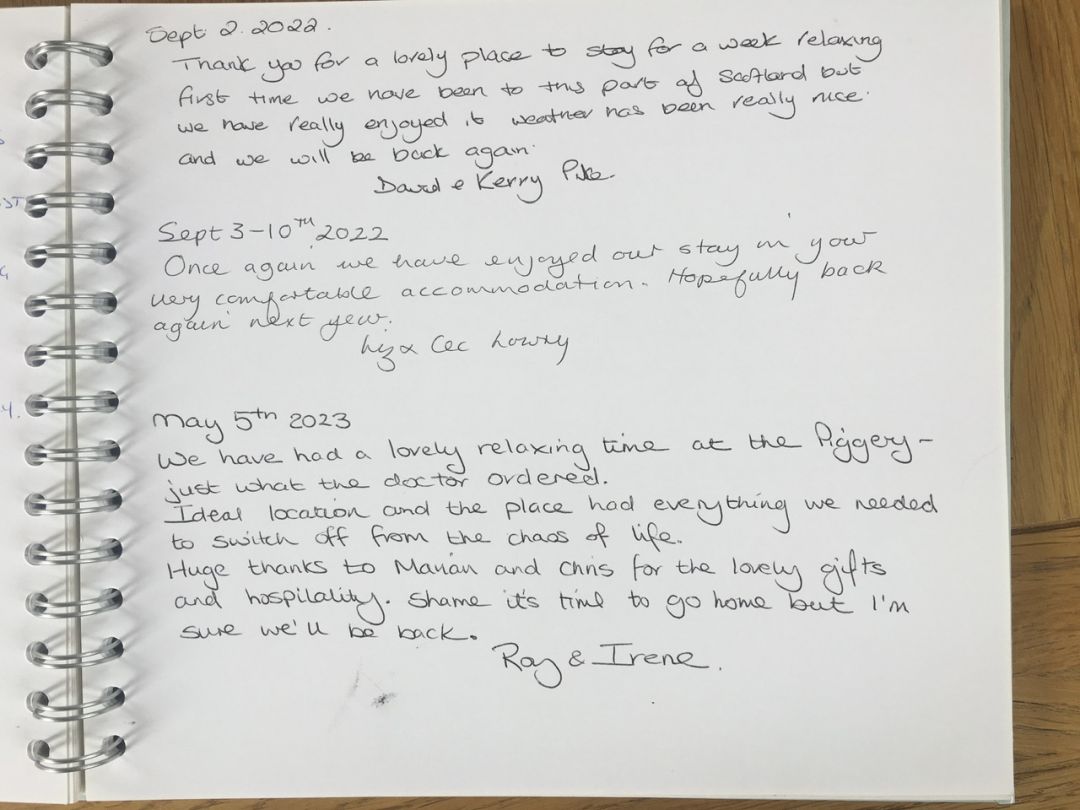 Sept 2. 2022.
Thank you for a lovely place to stay for a week relaxing
first time we have been to this part of Scotland but
we have really enjoyed it weather has been really nice.
and we will be back again.
David & Kerry
Sept 3-10TH 2022
Once again we have enjoyed our stay in your
very comfortable accommodation. Hopefully back
again next year.
Liz & Cec Lowry
May 5th 2023
We have had a lovely relaxing time at the Piggery -
just what the doctor ordered.
Ideal location and the place had everything we needed
to switch off from the chaos of life.
Huge thanks to Marian and Chris for the lovely gifts
and hospitality. Shame it's time to go home but I'm
sure we'll be back.
Ray & Irene.